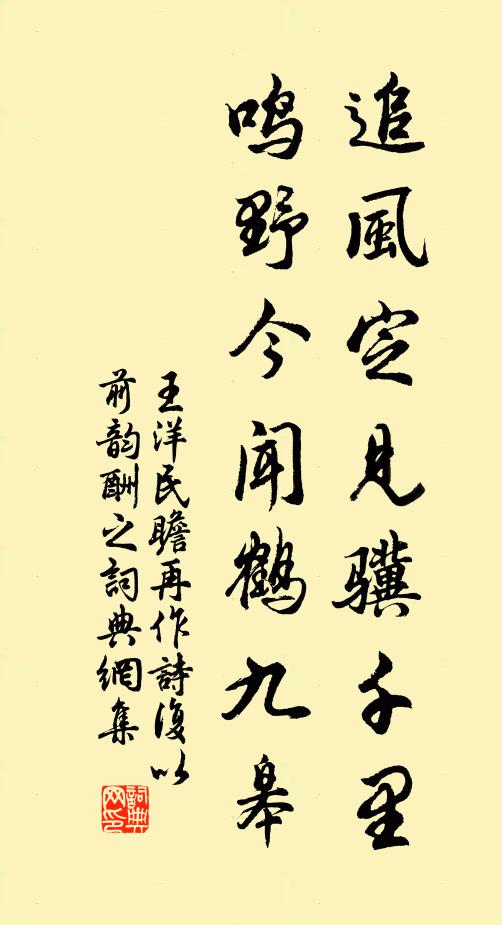 追風定見驥千里
鳴野今聞鶴九皋
王洋民瞻再作詩復以
前韵酬之詞典網集
詞典网印